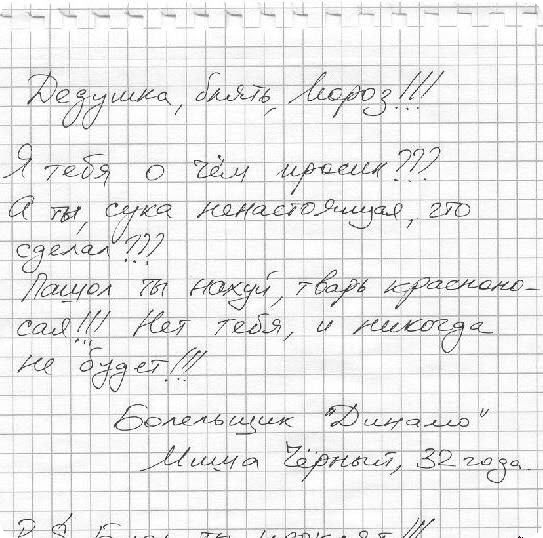 Дедушка, блять, Мороз!!!
Я тебя о чём просил???
А ты, сука ненастоящая, что
сделал???
Пашол ты нахуй, тварь красноно-
сая!!! Нет тебя, и никогда
не будет!!!
Болельщик "Динамо"
Миша Чёрный, 32 года